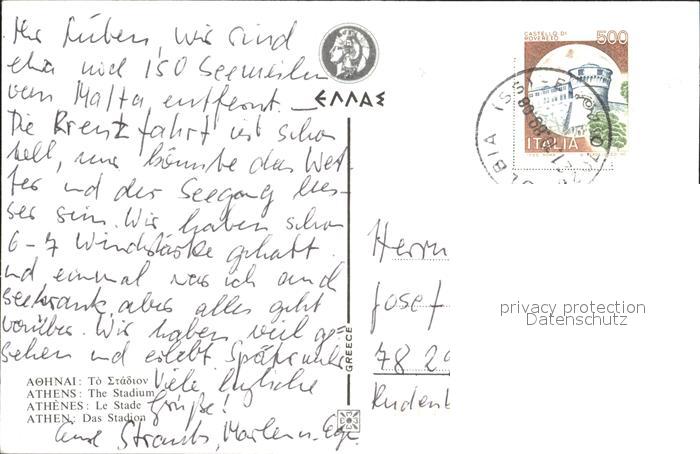 Ihr Lieben, wir sind
etwa noch 150 Seemeilen
von Malta entfernt.
Die Kreuzfahrt ist schon
toll, nur könnte das Wet-
ter und der Seegang bes-
ser sein. Wir haben schon
6-7 Windstärke gehabt
und einmal war ich auch
seekrank, aber alles geht
vorüber. Wir haben viel ge-
sehen und erlebt. Später mehr
Viele herzliche
Grüße!
Strauß, Marlen u.
ΕΛΛΑΣ
GREECE
ΑΘΗΝΑΙ: Τὸ Στάδιον
ATHENS: The Stadium
ATHÈNES: Le Stade
ATHEN: Das Stadion
CASTELLO DI
ROVERETO
500
ITALIA
OLBIA
Herrn
Josef
78 20
privacy protection
Datenschutz